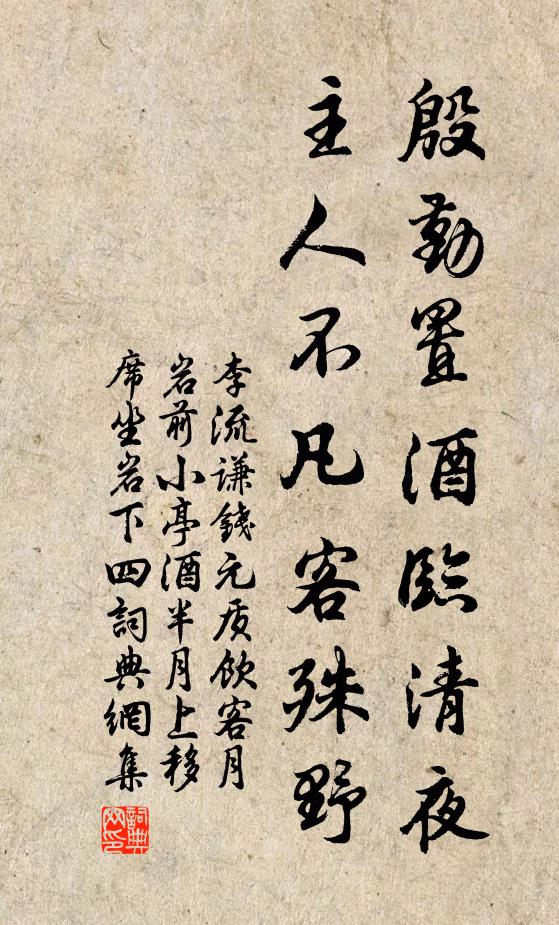 殷勤置酒臨清夜
主人不凡客殊野
李流謙錢元质飲客月
岩前小亭酒半月上移
席坐岩下四詞典網集
詞典网印